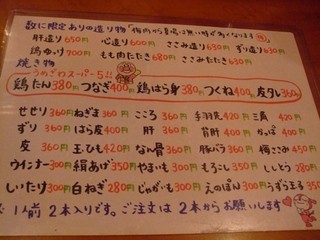 数に限定ありの造り物
肝造り 650円 心造り 600円 ささみ造り 530円 ずり造り 630円
鶏ゆり 900円 もも肉たたき 680円 ささみたたき 630円
焼き物
うめざわスーパー5!!
鶏たん 380円 つなぎ 400円 鶏はら身 380円 つくね 400円 皮タレ 360
せせり 360円 ねぎま 360円 こころ 360円 手羽先 420円 三角 420円
ずり 360円 はら皮 400円 肝 360円 背肝 400円 かっぱ 400円
皮 360円 玉ひも 420円 なん骨 360円 豚バラ 360円 梅ささみ 450円
ウインナー 300円 絹あげ 350円 やまいも 300円 もろこし 350円 ししとう 280円
しいたけ 300円 白ねぎ 280円 じゃがいも 300円 えのぽん 300円 うずら玉子 350
1人前 2本入りです。ご注文は2本からお願いします